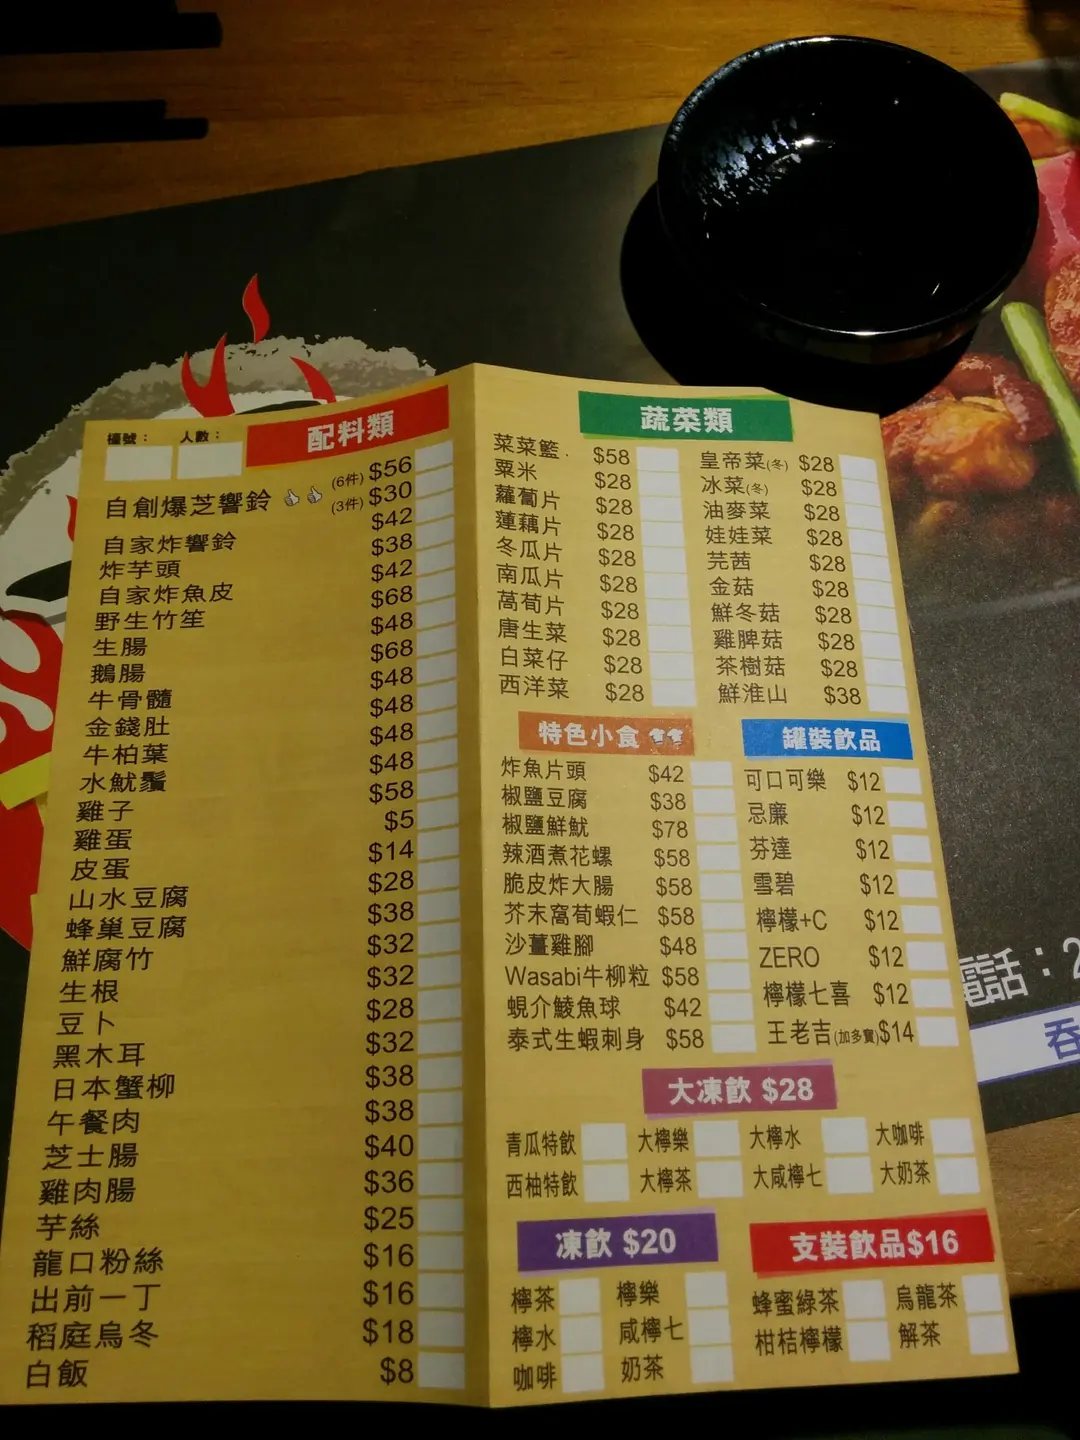 檯號： 人數：
配料類
自創爆芝響鈴 (6件) $56
(3件) $30
自家炸響鈴 $42
炸芋頭 $38
自家炸魚皮 $42
野生竹笙 $68
生腸 $48
鵝腸 $68
牛骨髓 $48
金錢肚 $48
牛柏葉 $48
水魷鬚 $48
雞子 $58
雞蛋 $5
皮蛋 $14
山水豆腐 $28
蜂巢豆腐 $38
鮮腐竹 $32
生根 $32
豆卜 $28
黑木耳 $32
日本蟹柳 $38
午餐肉 $38
芝士腸 $40
雞肉腸 $36
芋絲 $25
龍口粉絲 $16
出前一丁 $16
稻庭烏冬 $18
白飯 $8
蔬菜類
菜菜籃 $58
粟米 $28
蘿蔔片 $28
蓮藕片 $28
冬瓜片 $28
南瓜片 $28
萵荀片 $28
唐生菜 $28
白菜仔 $28
西洋菜 $28
皇帝菜(冬) $28
冰菜(冬) $28
油麥菜 $28
娃娃菜 $28
芫茜 $28
金菇 $28
鮮冬菇 $28
雞脾菇 $28
茶樹菇 $28
鮮淮山 $38
特色小食
炸魚片頭 $42
椒鹽豆腐 $38
椒鹽鮮魷 $78
辣酒煮花螺 $58
脆皮炸大腸 $58
芥末窩荀蝦仁 $58
沙薑雞腳 $48
Wasabi牛柳粒 $58
蜆介鯪魚球 $42
泰式生蝦刺身 $58
罐裝飲品
可口可樂 $12
忌廉 $12
芬達 $12
雪碧 $12
檸檬+C $12
ZERO $12
檸檬七喜 $12
王老吉(加多寶) $14
大凍飲 $28
青瓜特飲 大檸樂 大檸水 大咖啡
西柚特飲 大檸茶 大咸檸七 大奶茶
凍飲 $20
檸茶 檸樂
檸水 咸檸七
咖啡 奶茶
支裝飲品$16
蜂蜜綠茶 烏龍茶
柑桔檸檬 解茶
電話：2
吞